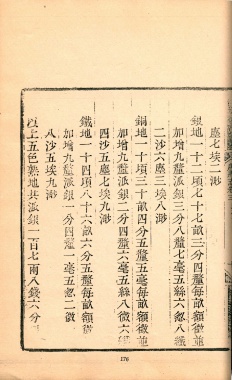 塵七埃二渺
銀地一十二項七十七畝三分四釐每畝額徵並
加增九釐派銀二分八釐七毫五絲六忽八纖
二沙六塵三埃八渺
銅地一十二項三十畝四分五釐五毫每畝額徵並
加增九釐派銀二分四釐六毫五絲八微六纖
四沙五塵七埃九渺
鐵地一十四項八十六畝六分五釐每畝額徵
加增九釐派銀二分四釐一毫五忽二微
八沙五埃九渺
以上五色熟地共派銀一百七兩八錢六分
176